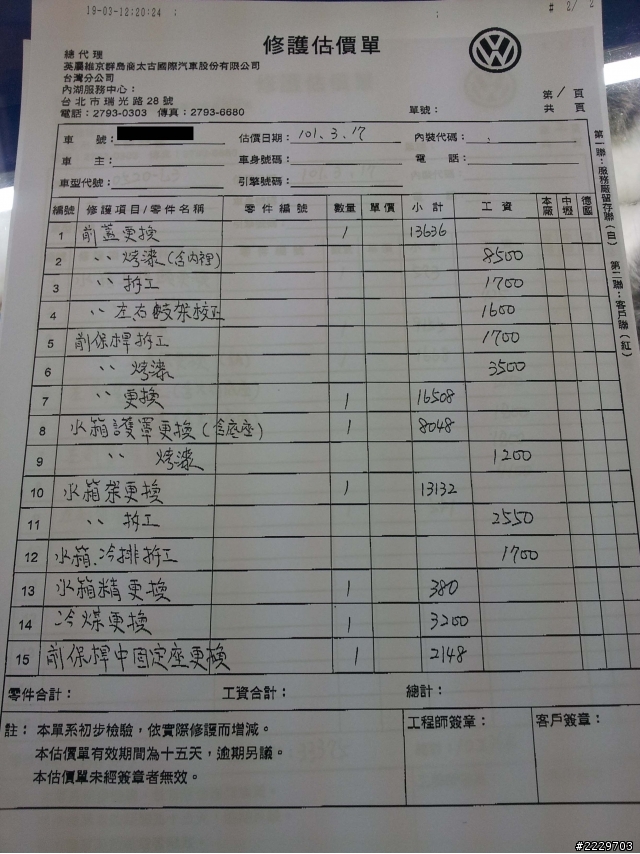 19-03-12;20:24 ;
;
# 2/ 2
修護估價單
總代理
英屬維京群島商太古國際汽車股份有限公司
台灣分公司
內湖服務中心：
台北市瑞光路28號
電話：2793-0303 傳真：2793-6680
單號：
第 / 頁
共 頁
車號： 估價日期：101.3.17 內裝代碼：
車主： 車身號碼： 電話：
車型代號： 引擎號碼：
編號 修護項目/零件名稱 零件編號 數量 單價 小計 工資 本廠 中壢 德國
1 前蓋更換 1 13636
2 〃 烤漆(含內裡) 8500
3 〃 拆工 1700
4 〃 左右鉸架校正 1600
5 前保桿拆工 1700
6 〃 烤漆 3500
7 〃 更換 1 16508
8 水箱護罩更換(含底座) 1 8048
9 〃 烤漆 1200
10 水箱架更換 1 13132
11 〃 拆工 2550
12 水箱.冷排拆工 1700
13 水箱精更換 1 380
14 冷煤更換 1 3200
15 前保桿中固定座更換 1 2148
零件合計： 工資合計： 總計：
註：本單系初步檢驗，依實際修護而增減。
本估價單有效期間為十五天，逾期另議。
本估價單未經簽章者無效。
工程師簽章： 客戶簽章：
第一聯：服務廠留存聯(白)
第二聯：客戶聯(紅)
#2229703